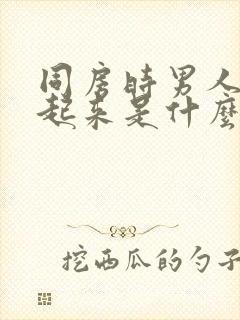 同房时男人
起来是什麽
挖西瓜的勺子